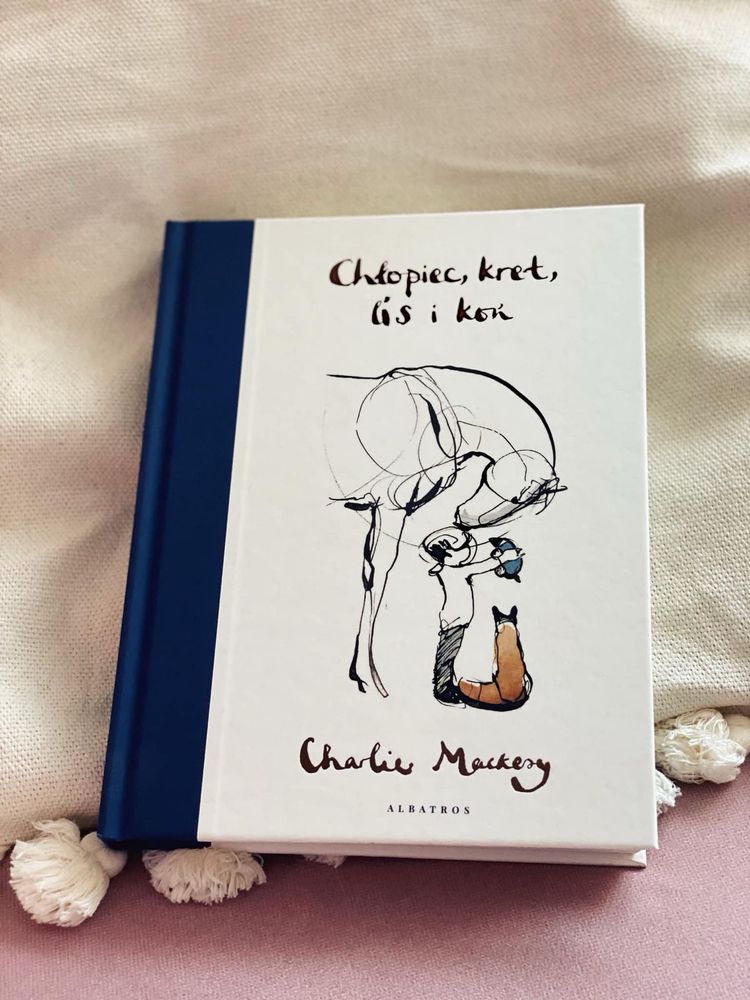 Chłopiec, kret,
lis i koń
Charlie Mackesy
ALBATROS